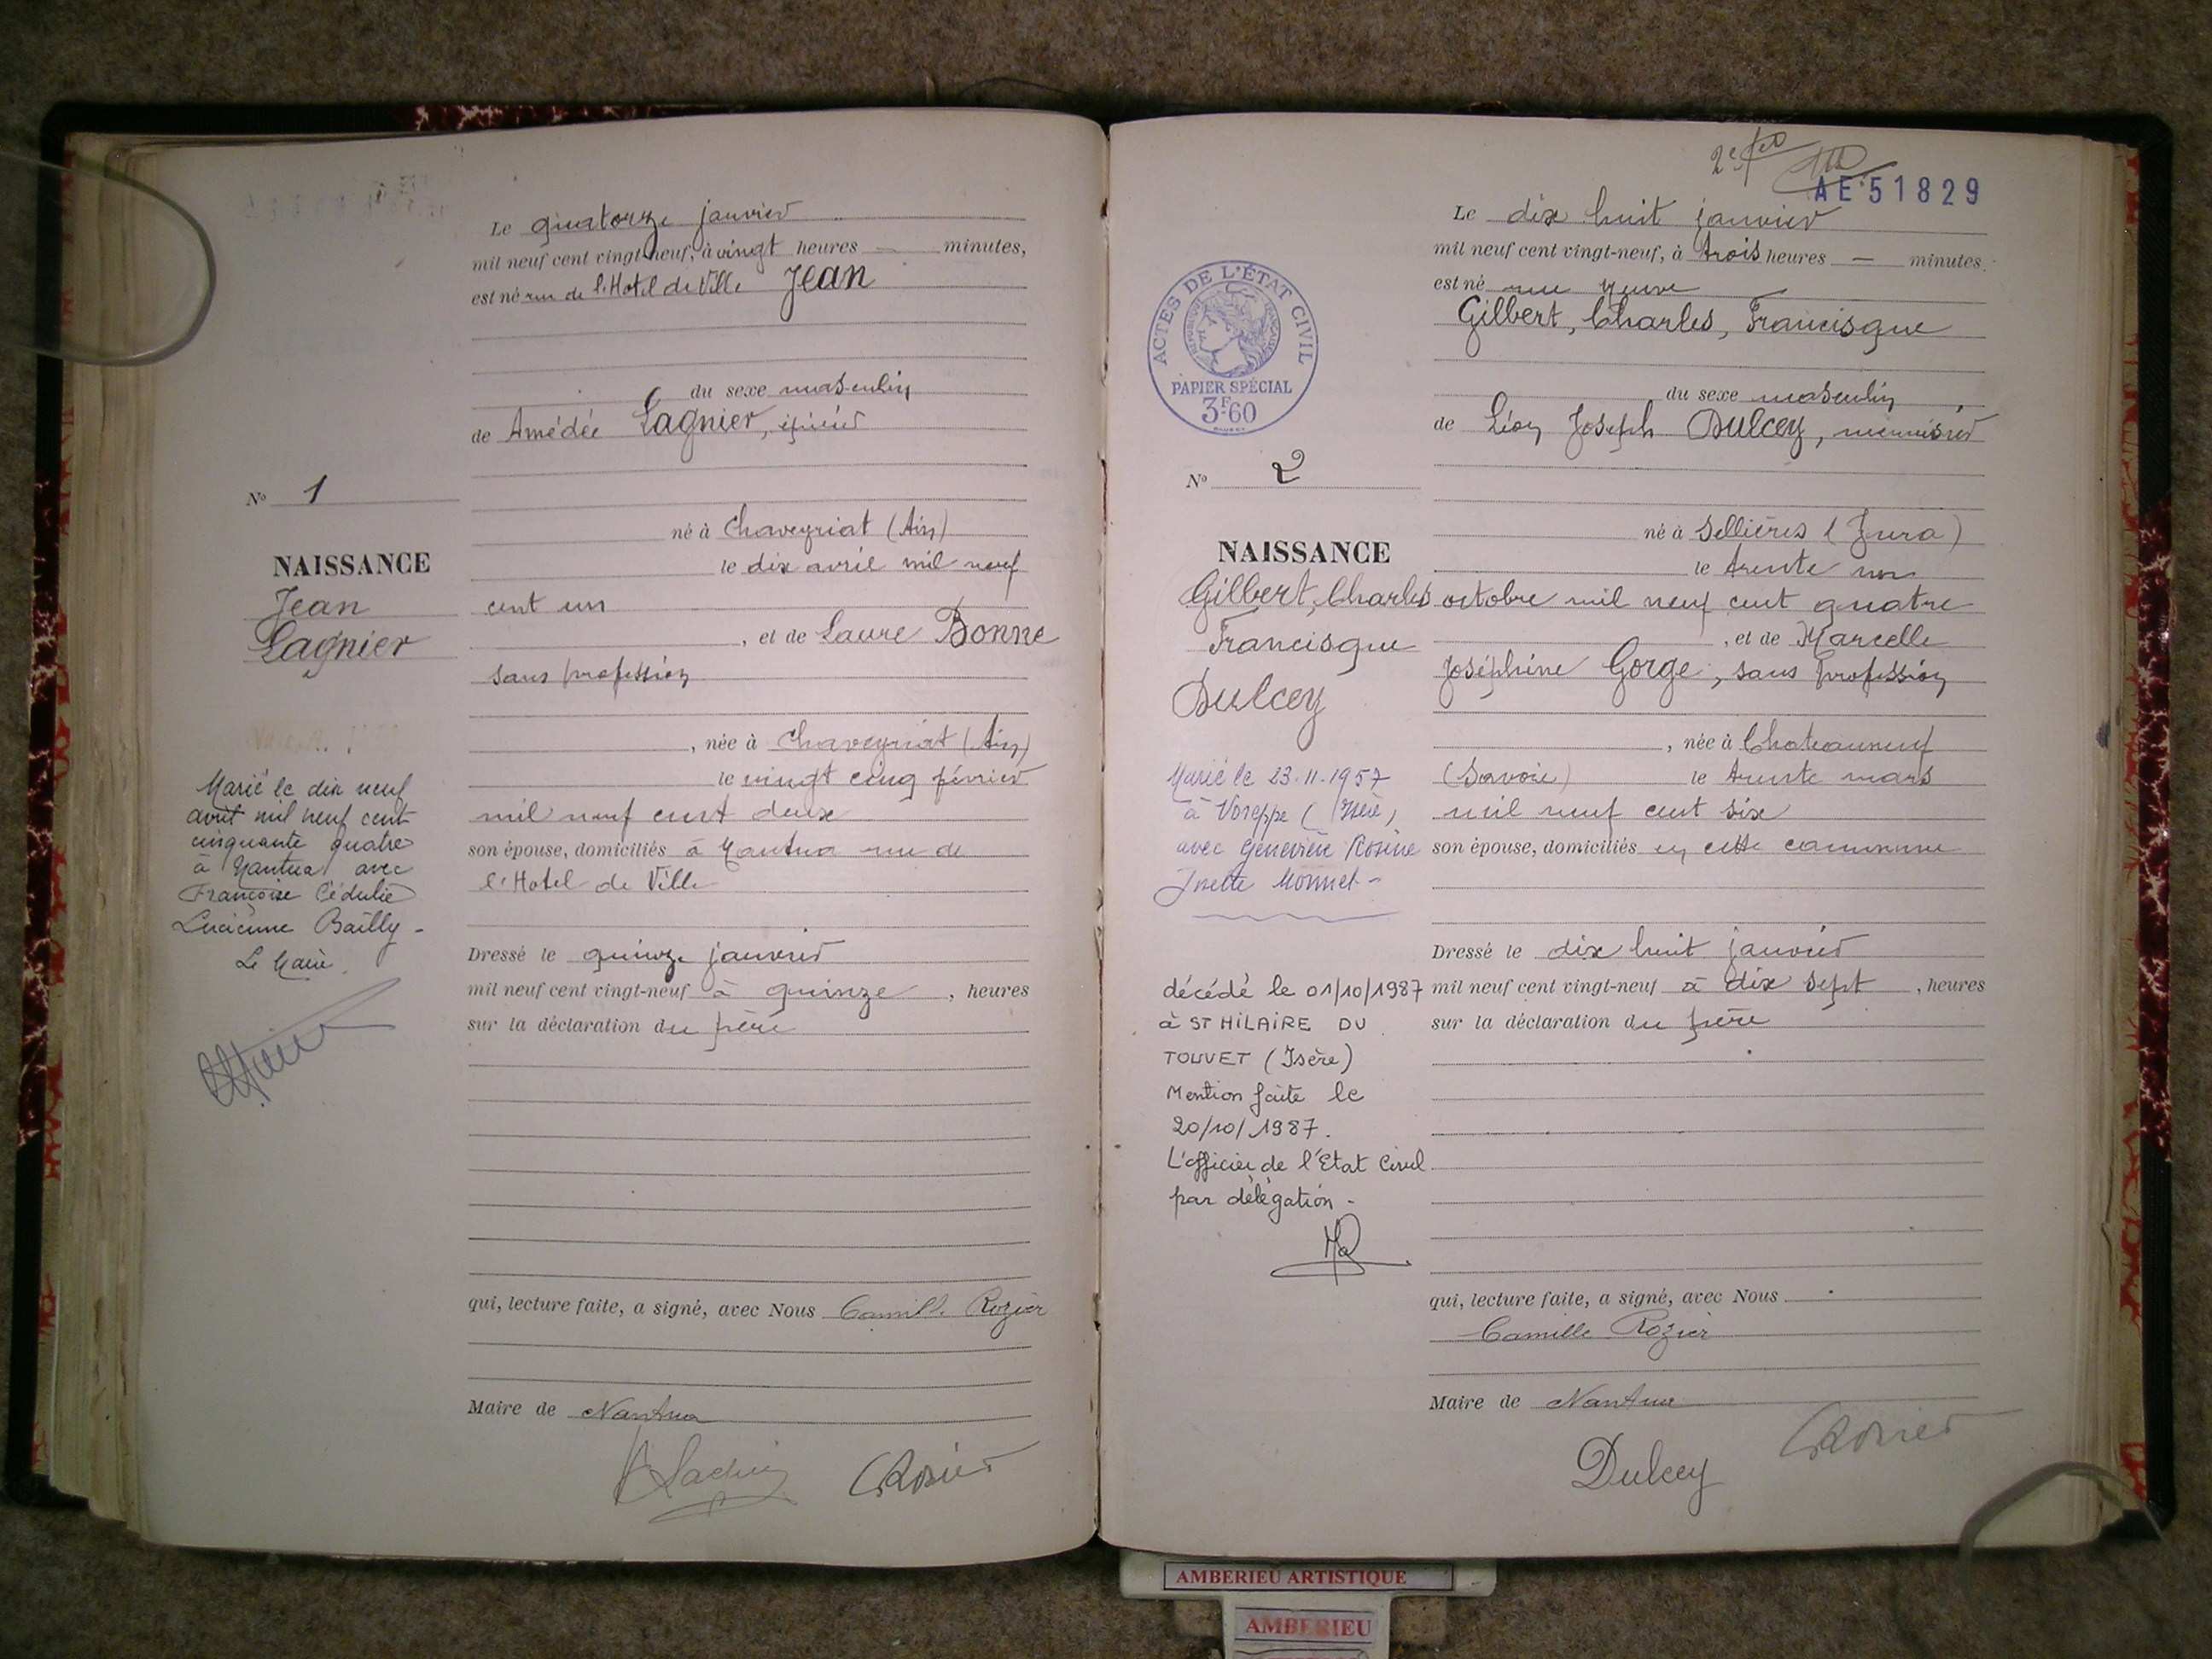 Le quatorze janvier
mil neuf cent vingt-neuf, à vingt heures — minutes,
est né rue de l'Hotel de Ville Jean
du sexe masculin
de Amédée Lagnier, épicier
N° 1
né à Chaveyriat (Ain)
NAISSANCE
le dix avril mil neuf
Jean
cent un
Lagnier
, et de Laure Bonne
sans profession
, née à Chaveyriat (Ain)
le vingt cinq février
mil neuf cent deux
son épouse, domiciliés à Nantua rue de
l'Hotel de Ville
Marié le dix neuf
avril mil neuf cent
cinquante quatre
à Nantua avec
Françoise Cédulie
Lucienne Bailly -
Le Maire
Dressé le quinze janvier
mil neuf cent vingt-neuf à quinze, heures
sur la déclaration du père
qui, lecture faite, a signé, avec Nous Camille Rozier
Maire de Nantua
CRozier
AE 51829
Le dix huit janvier
mil neuf cent vingt-neuf, à trois heures — minutes
est né rue neuve
Gilbert, Charles, Francisque
ACTES DE L'ÉTAT CIVIL
PAPIER SPÉCIAL
3F60
du sexe masculin
de Léon Joseph Dulcey, menuisier
N° 2
né à Sellières (Jura)
NAISSANCE
le trente un
Gilbert, Charles
octobre mil neuf cent quatre
Francisque
, et de Marcelle
Dulcey
Joséphine Gorge, sans profession
, née à Chateauneuf
(Savoie) le trente mars
mil neuf cent six
son épouse, domiciliés en cette commune
Marié le 23.11.1957
à Voreppe (Isère)
avec Geneviève Rosine
Josette Monnet -
Dressé le dix huit janvier
mil neuf cent vingt-neuf à dix sept, heures
sur la déclaration du père
décédé le 01/10/1987
à ST HILAIRE DU
TOUVET (Isère)
Mention faite le
20/10/1987.
L'officier de l'Etat Civil
par délégation -
qui, lecture faite, a signé, avec Nous
Camille Rozier
Maire de Nantua
Dulcey
CRozier
AMBERIEU ARTISTIQUE
AMBERIEU